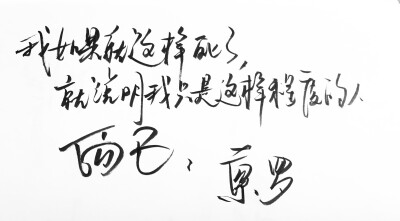 我如果就这样死了，
就说明我只是这样程度的人
而已，索罗